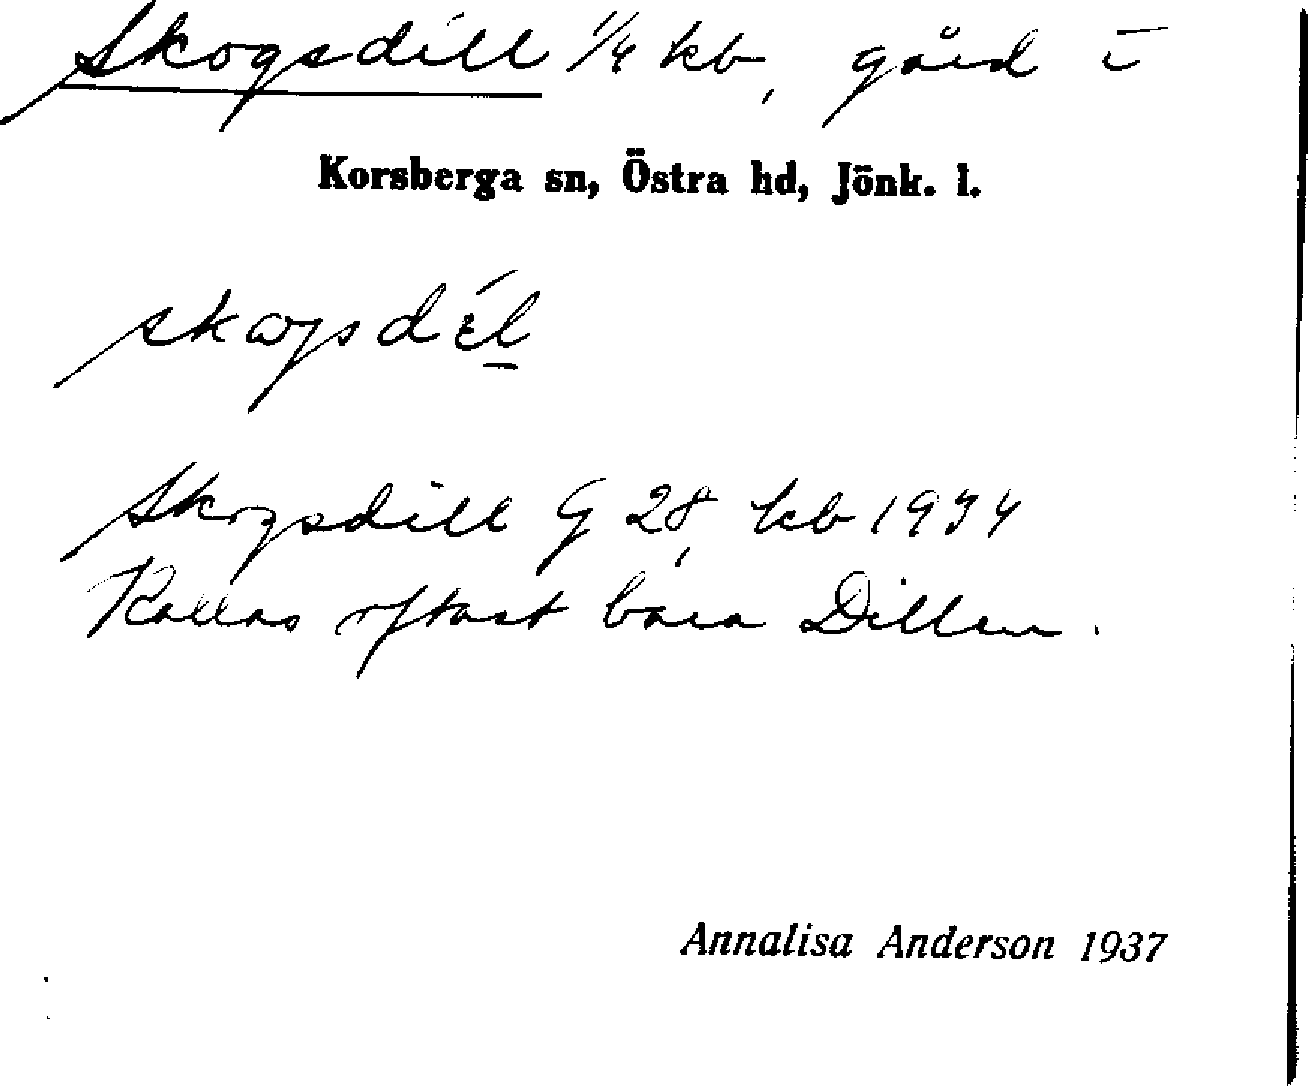 Skogsdill 1/4 kb, gård i
Korsberga sn, Östra hd, Jönk. l.
Skogsdill G 28, kb 1934
Kallas oftast bara Dillen.
Annalisa Anderson 1937